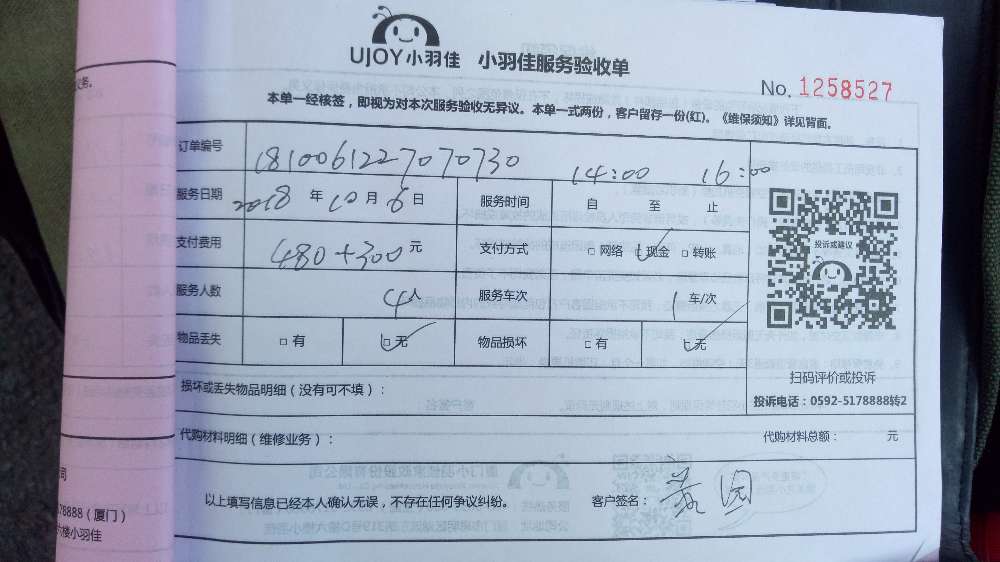 UJOY小羽佳 小羽佳服务验收单
No. 1258527
本单一经核签，即视为对本次服务验收无异议。本单一式两份，客户留存一份(红)。《维保须知》详见背面。
订单编号 181006122707​0730 14:00 16:00
服务日期 2018 年 10 月 6 日 服务时间 自 至 止
支付费用 480+300元 支付方式 □网络 □现金 □转账
投诉或建议
服务人数 4人 服务车次 1 车/次
物品丢失 □有 □无 物品损坏 □有 □无
扫码评价或投诉
损坏或丢失物品明细（没有可不填）：
投诉电话：0592-5178888转2
代购材料明细（维修业务）： 代购材料总额： 元
以上填写信息已经本人确认无误，不存在任何争议纠纷。 客户签名：
78888（厦门）
六楼小羽佳